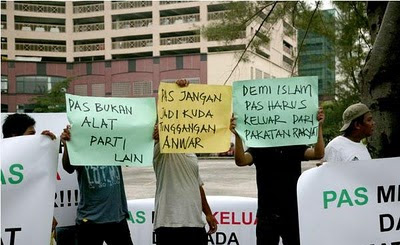 PAS BUKAN
ALAT
PARTI
LAIN
PAS JANGAN
JADI KUDA
TUNGGANGAN
ANWAR
DEMI ISLAM
PAS HARUS
KELUAR DARI
PAKATAN RAKYAT
AS
!!!
KELUA
ADA
PAS ME
DA